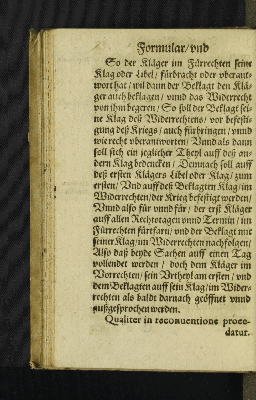 Formular/ vnd
So der Kläger im Fürrechten seine
Klag oder Libel/ fürbracht oder vberant-
wort hat/ wil dann der Beklagt den Klä-
ger auch beklagen/ vnnd das Widerrecht
von ihm begeren/ So soll der Beklagt sei-
ne Klag deß Widerrechtens/ vor befesti-
gung deß Kriegs/ auch fürbringen/ vnnd
wie recht vberantworten/ Vnnd als dann
soll sich ein jeglicher Theyl auff deß an-
dern Klag bedencken/ Demnach soll auff
deß ersten Klägers Libel oder Klag/ zum
ersten/ Vnd auff deß Beklagten Klag/ im
Widerrechten/ der Krieg befestigt werden/
Vnnd also für vnnd für/ der erst Kläger
auff allen Rechtstagen vnnd Termin/ im
Fürrechten fürfarn/ vnd der Beklagt mit
seiner Klag/ im Widerrechten nachfolgen/
Also daß beyde Sachen auff einen Tag
vollendet werden/ doch dem Kläger im
Vorrechten/ sein Vrtheyl am ersten/ vnd
dem Beklagten auff sein Klag/ im Wider-
rechten als baldt darnach geöffnet vnnd
außgesprochen werden.
Qualiter in reconuentione proce-
datur.